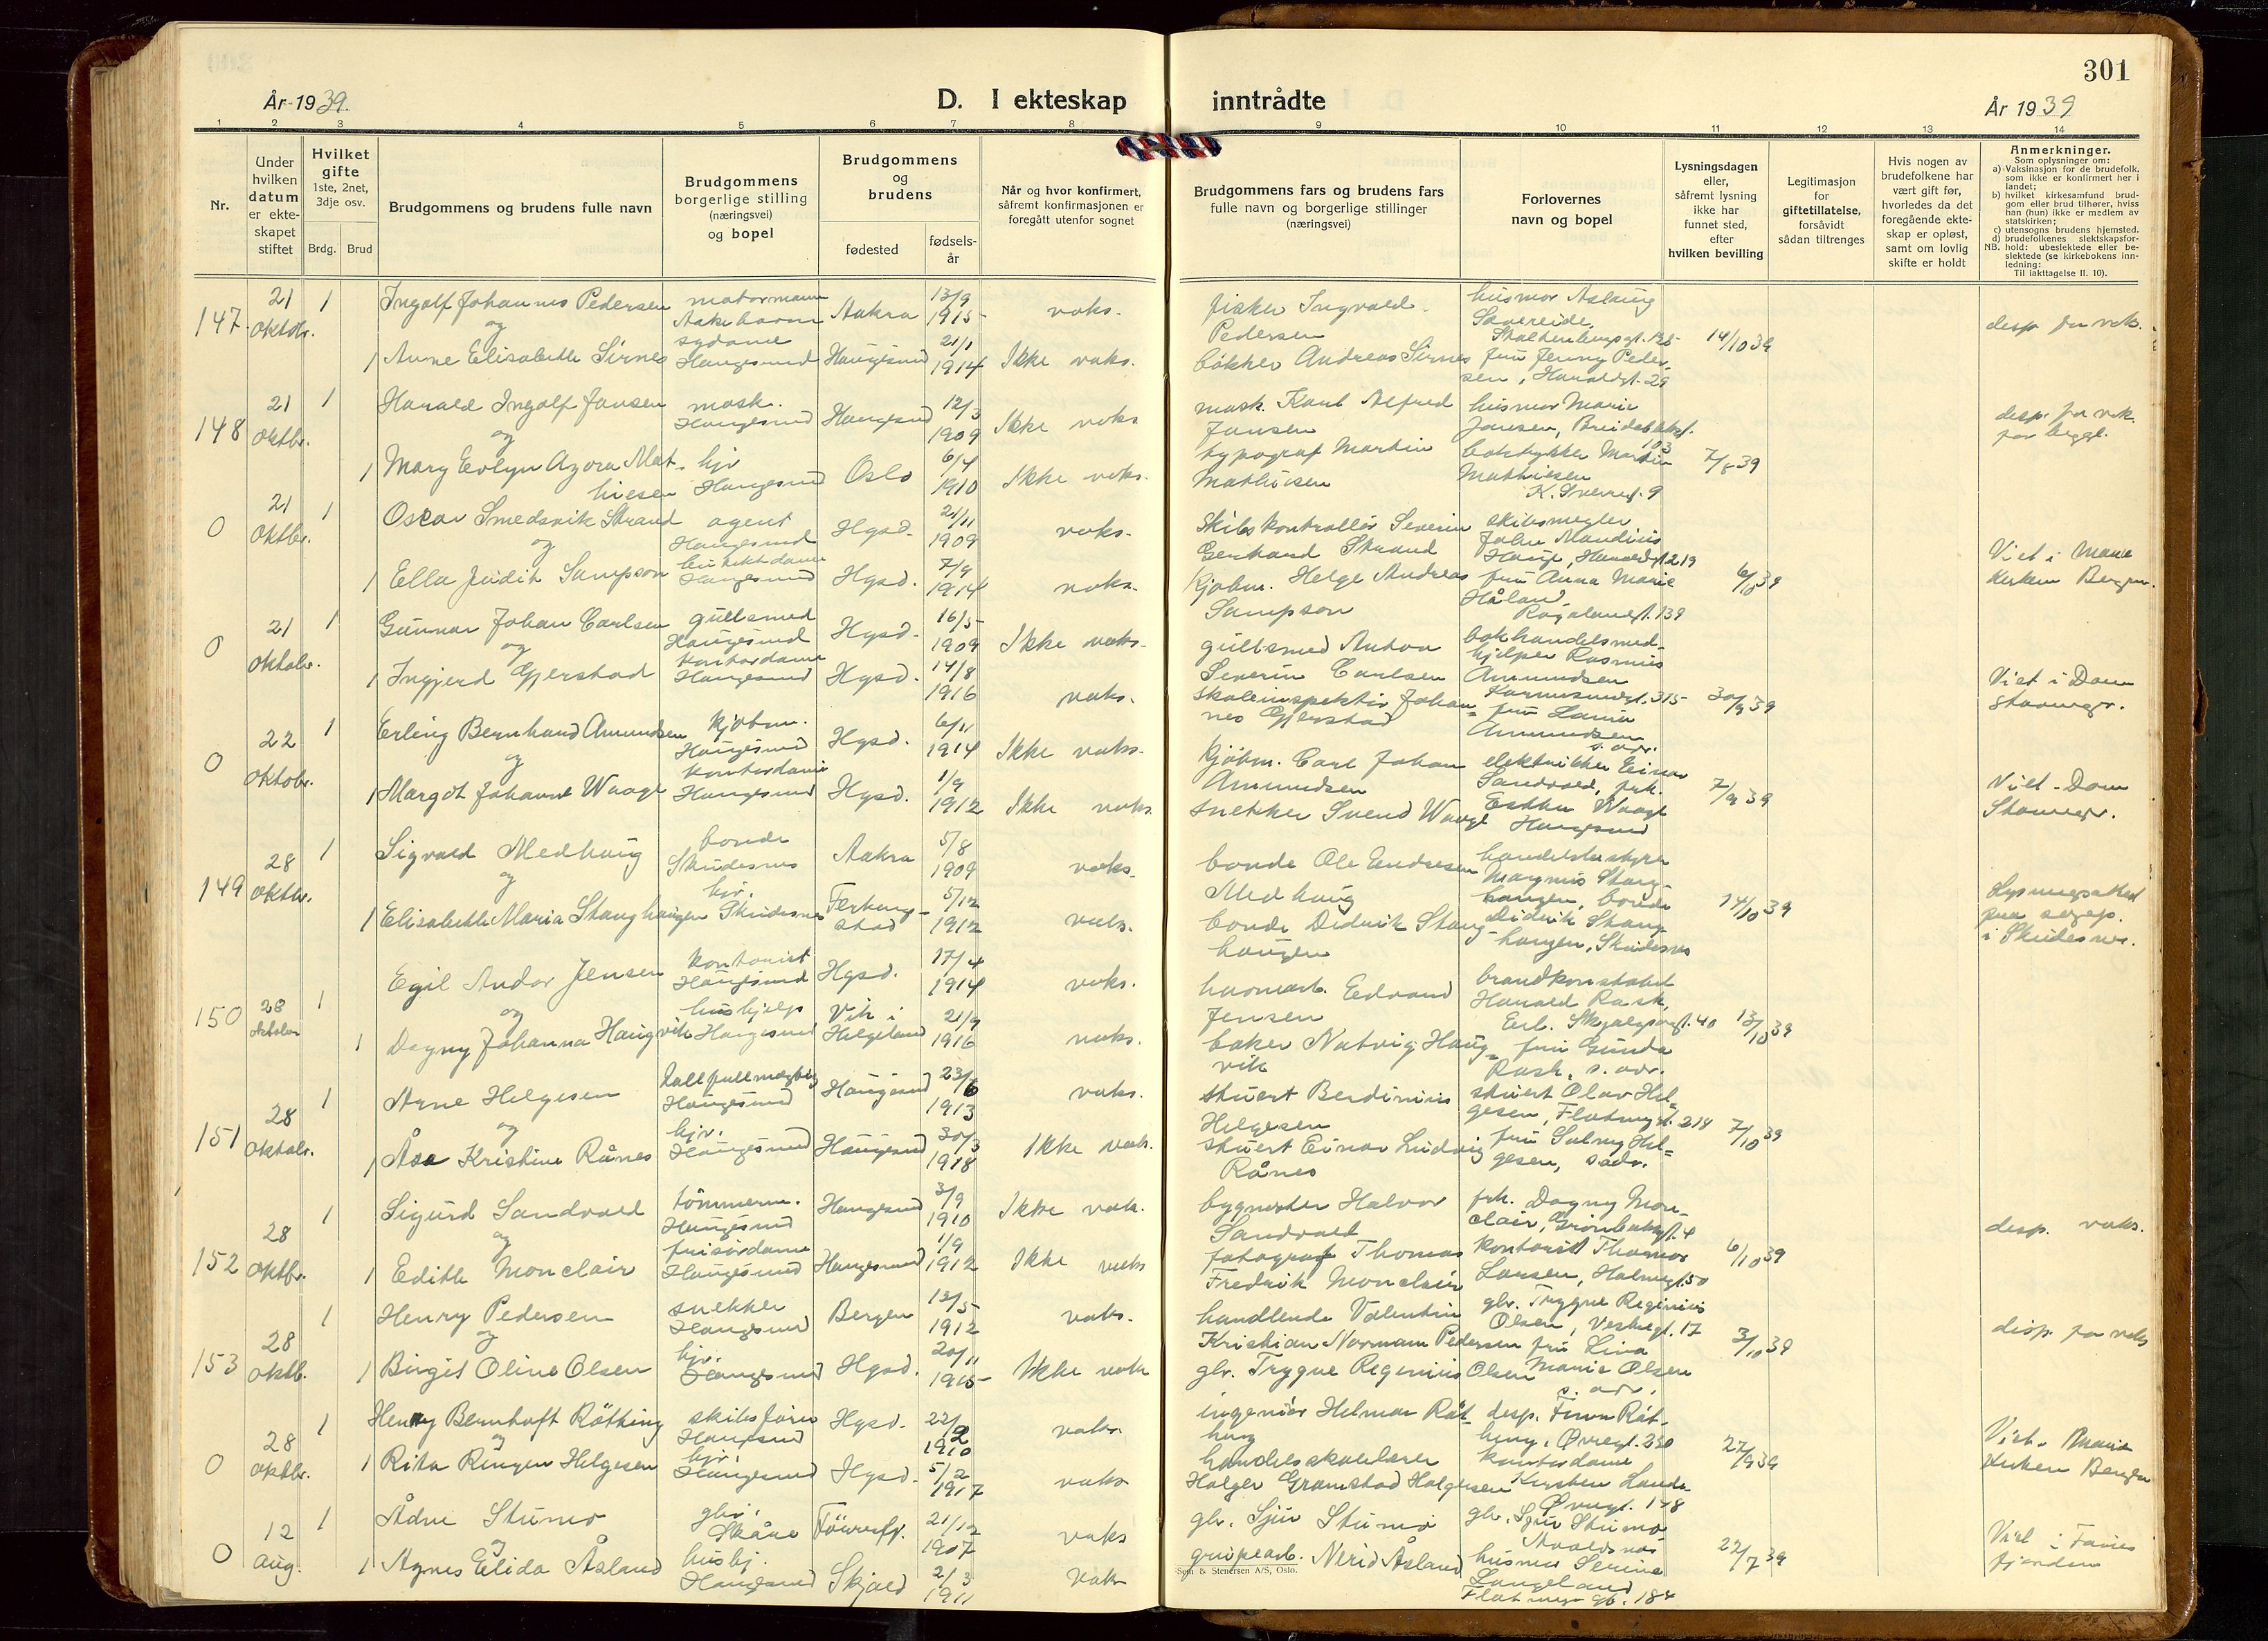 301
År 1939.
D. I ekteskap inntrådte
År 1939
1 2 3 4 5 6 7 8 9 10 11 12 13 14
Nr.
Under hvilken datum er ekteskapet stiftet
Hvilket gifte
1ste, 2net, 3dje osv.
Brdg. Brud
Brudgommens og brudens fulle navn
Brudgommens borgerlige stilling (næringsvei) og bopel
Brudgommens og brudens
fødested
fødselsår
Når og hvor konfirmert, såfremt konfirmasjonen er foregått utenfor sognet
Brudgommens fars og brudens fars fulle navn og borgerlige stillinger (næringsvei)
Forlovernes navn og bopel
Lysningsdagen eller, såfremt lysning ikke har funnet sted, efter hvilken bevilling
Legitimasjon for giftetillatelse, forsåvidt sådan tiltrenges
Hvis nogen av brudefolkene har vært gift før, hvorledes da det foregående ekteskap er opløst, samt om lovlig skifte er holdt
Anmerkninger.
Som oplysninger om:
a) Vaksinasjon for de brudefolk, som ikke er konfirmert her i landet;
b) hvilket kirkesamfund brudgom eller brud tilhører, hviss han (hun) ikke er medlem av statskirken;
c) utensogns brudens hjemsted.
d) brudefolkenes slektskapsforhold: ubeslektede eller beslektede (se kirkebokens innledning:
NB.
Til iakttagelse II. 10).
147. 21 oktobr. 1 Ingolf Johannes Pedersen Aakra 13/9 1915 vaks. fisker Ingvald Pedersen husmor Aslaug 14/10 39 desp. for vaks.
og
1 Anne Elisabeth Sirnes sydame Haugesund Haugesund 21/1 1914 Ikke vaks. bøkker Andreas Sirnes fru Jenny Pedersen, Haraldsgt. 29
148 21 oktbr. 1 Harald Ingolf Jansen mask. Haugesund Haugesund 12/3 1909 Ikke vaks mask. Karl Alfred Jansen husmor Marie Jansen, 103 desp. for vak. for begge.
og
1 Mary Evlyn Azora Mathiesen hjv Haugesund Oslo 6/4 1910 Ikke vaks. typograf Martin Mathiesen boktrykker Martin Mathiesen K. Sverresgt. 9 7/ 39
0 21 oktbr. 1 Oscar Smedsvik Strand agent Haugesund Hgsd. 21/11 1909 vaks. Skibskontrollør Severin Gerhard Strand skibsmegler John Haraldsgt 219 Viet i Mariekirken Bergen.
og
1 Ella Judit Sampson Haugesund Hgsd. 7/9 1914 vaks. Kjøbm. Helge Andreas Sampson fru Anna Marie Håland Rogalandsgt. 139 6/10 39
0 21 oktobr. 1 Gunnar Johan Carlsen gullsmed Haugesund Hgsd. 16/5 1909 Ikke vaks. gullsmed Anton Severin Carlsen bokhandelsmedhjelper Rasmus Amundsen Karmsundgt. 315 Viet i Dom Stavanger.
og
1 Ingjerd Gjerstad kontordame Haugesund Hgsd. 14/8 1916 vaks. skoleinspektør Johannes Gjerstad fru Laura Amundsen s. adr. 30/9 39
0 22 oktobr. 1 Erling Bernhard Amundsen kjøbm. Haugesund Hgsd. 6/11 1914 Ikke vaks. kjøbm. Carl Johan Amundsen elektriker Einar Sandvold, frk. Viet Dom Stavanger.
og
1 Margot Johanne Waage kontordame Haugesund Hgsd. 1/9 1912 Ikke vaks. snekker Svend Waage Esther Waage Haugesund 7/9 39
149 28 oktbr. 1 Sigvald Medhaug bonde Skudesnes Aakra 5/8 1909 vaks. bonde Ole Endresen Medhaug handelsbestyrer Magnus Stanghaugen, bonde 14/10 39 Lysningsattest fra sogep. i Skudesnes.
og
1 Elisabeth Maria Stanghaugen hjv. Skudesnes Ferkingstad 5/12 1912 vaks. bonde Didrik Stanghaugen Didrik Stanghaugen, Skudesnes
150 28 oktober 1 Egil Andor Jensen kontorist Haugesund Hgsd. 17/4 1914 vaks. havnearb. Edvard Jensen brandkonstabel Harald Rask, Erl. Skjalgsonsgt. 40 13/10 39
og
1 Dagny Johanna Haugvik hushjelp Haugesund Vik i Helgeland 21/9 1916 vaks. baker Natvig Haugvik fru Gunda Rask, s. adr.
151 28 oktobr. 1 Arne Helgesen Haugesund Haugesund 23/6 1913 vaks. stuert Berdinius Helgesen stuert Olav Helgesen, Flotmyrgt. 218 7/10 39
og
1 Åsa Kristine Rånes hjv. Haugesund Haugesund 30/3 1918 Ikke vaks. stuert Einar Ludvig Rånes fru Solveig Helgesen, s adr.
152 28 oktbr. 1 Sigurd Sandvold tømmerm. Haugesund Haugesund 3/9 1910 Ikke vak. bygmester Halvor Sandvold frk. Dagny Monclair, desp. vaks.
og
1 Edith Monclair frisørdame Haugesund Haugesund 1/9 1912 Ikke vaks fotograf Thomas Fredrik Monclair kontorist Thomas Larsen, 6/10 39
153 28 oktb. 1 Henry Pedersen snekker Haugesund Bergen 12/5 1912 vaks. handlende Valentin Kristian Normann Pedersen gbr. Trygve Reginius Olsen, Vestregt. 17 3/10 39 disp. for vaks
og
1 Birgit Oline Olsen hjv. Haugesund Hgsd. 20/11 1915 Ikke vaks gbr. Trygve Reginius Olsen fru Lina Marie Olsen s. adr.
0 28 oktbr. 1 Henry Bernhoft Røthing skibsfører Haugesund Hgsd. 22/2 1910 vaks. ingeniør Helmar Røthing desp. Finn Røthing, Øvregt. 230 27/9 39 Viet Mariekirken Bergen
og
1 Rita Ringen Helgesen hjv. Haugesund Hgsd. 5/2 1917 vaks handelsskolelærer Holger Gramstad Helgesen kontordame Kirsten Lande Øvregt. 178
0 12 aug. 1 Ådne Stumo gbr. Skåne 21/12 1907 vaks gbr. Sjur Stumo gbr. Sjur Stumo Avaldsnes 22/7 39 Viet i
og
1 Agnes Elida Åsland hushj. Haugesund Skjold 2/3 1911 Vaks grubearb. Nerid Åsland husmor Serine Langeland Flotmyrgt. 184
Sem & Stenersen A/S, Oslo.